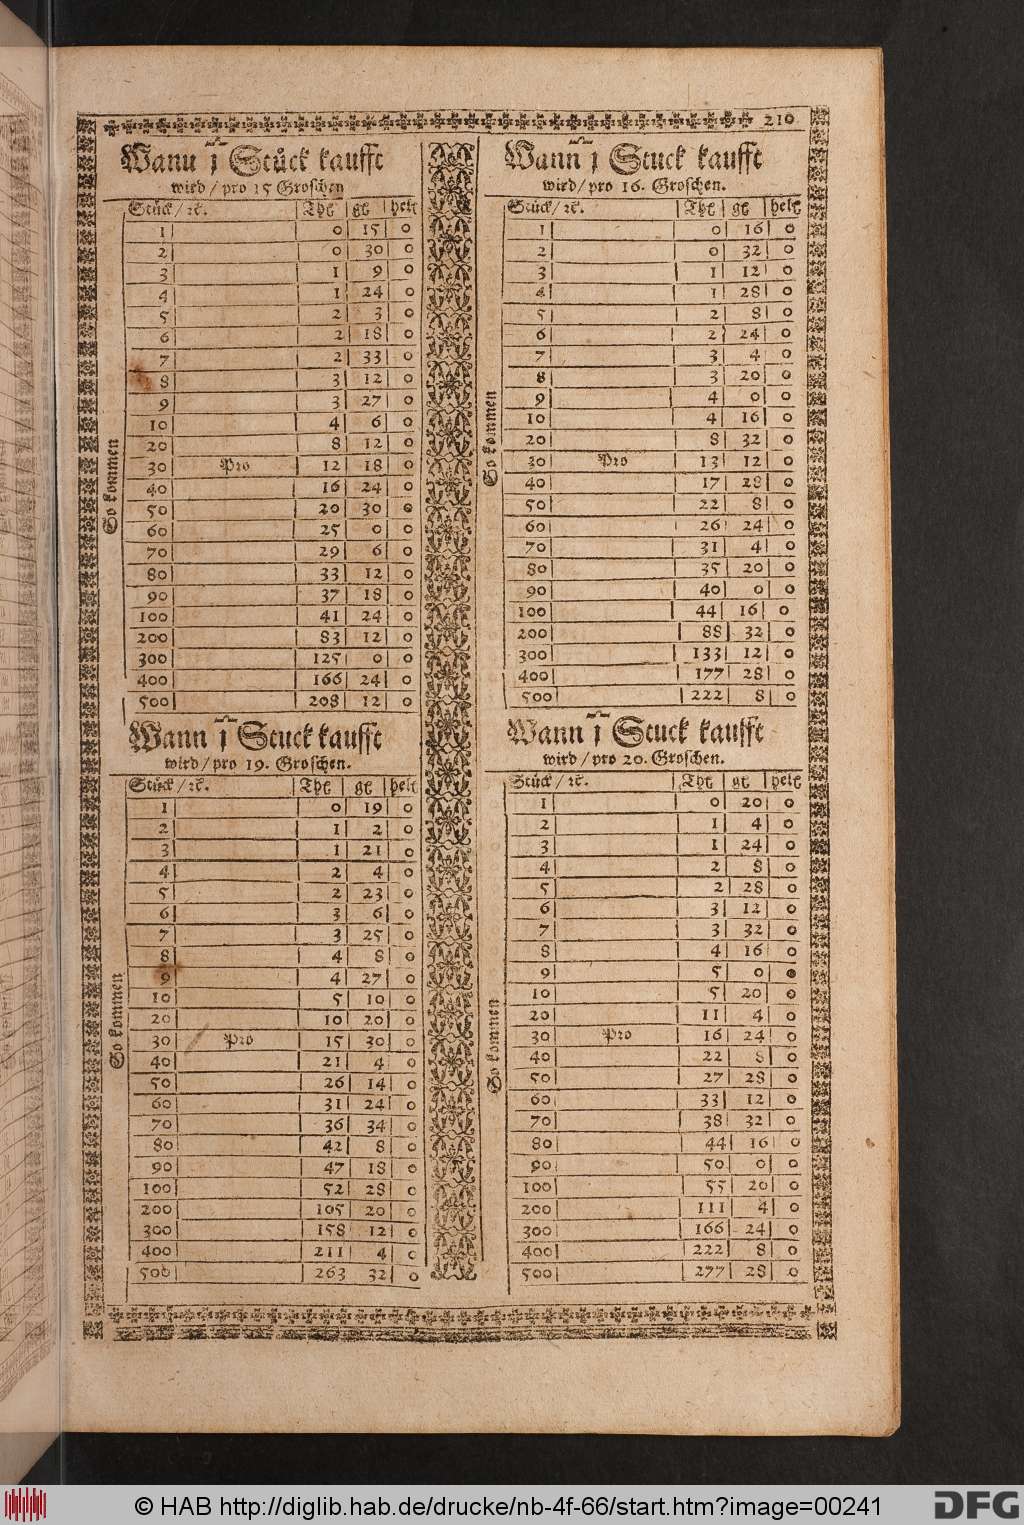 210
Wanu j Stück kaufft
wird / pro 15 Groschen
Stück / ꝛc. Thl gl helt
So kommen
1 0 15 0
2 0 30 0
3 1 9 0
4 1 24 0
5 2 3 0
6 2 18 0
7 2 33 0
8 3 12 0
9 3 27 0
10 4 6 0
20 8 12 0
30 Pro 12 18 0
40 16 24 0
50 20 30 0
60 25 0 0
70 29 6 0
80 33 12 0
90 37 18 0
100 41 24 0
200 83 12 0
300 125 0 0
400 166 24 0
500 208 12 0
Wann j Stuck kaufft
wird / pro 16. Groschen.
Stück / ꝛc. Thl gl helt
So kommen
1 0 16 0
2 0 32 0
3 1 12 0
4 1 28 0
5 2 8 0
6 2 24 0
7 3 4 0
8 3 20 0
9 4 0 0
10 4 16 0
20 8 32 0
30 Pro 13 12 0
40 17 28 0
50 22 8 0
60 26 24 0
70 31 4 0
80 35 20 0
90 40 0 0
100 44 16 0
200 88 32 0
300 133 12 0
400 177 28 0
500 222 8 0
Wann j Stuck kaufft
wird / pro 19. Groschen.
Stück / ꝛc. Thl gl helt
So kommen
1 0 19 0
2 1 2 0
3 1 21 0
4 2 4 0
5 2 23 0
6 3 6 0
7 3 25 0
8 4 8 0
9 4 27 0
10 5 10 0
20 10 20 0
30 Pro 15 30 0
40 21 4 0
50 26 14 0
60 31 24 0
70 36 34 0
80 42 8 0
90 47 18 0
100 52 28 0
200 105 20 0
300 158 12 0
400 211 4 0
500 263 32 0
Wann j Stuck kaufft
wird / pro 20. Groschen.
Stück / ꝛc. Thl gl helt
So kommen
1 0 20 0
2 1 4 0
3 1 24 0
4 2 8 0
5 2 28 0
6 3 12 0
7 3 32 0
8 4 16 0
9 5 0 0
10 5 20 0
20 11 4 0
30 Pro 16 24 0
40 22 8 0
50 27 28 0
60 33 12 0
70 38 32 0
80 44 16 0
90 50 0 0
100 55 20 0
200 111 4 0
300 166 24 0
400 222 8 0
500 277 28 0
© HAB http://diglib.hab.de/drucke/nb-4f-66/start.htm?image=00241
DFG